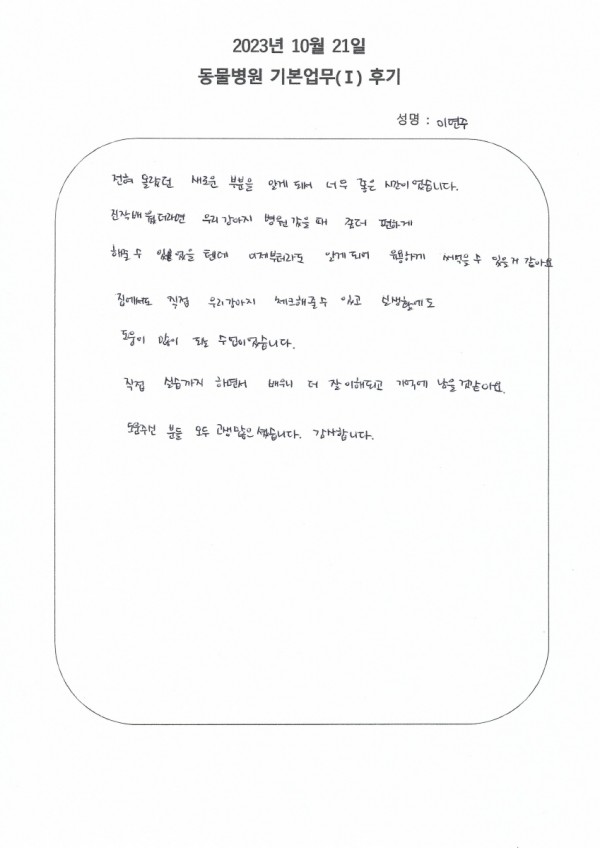 2023년 10월 21일
동물병원 기본업무(I) 후기
성명 : 이연주
전혀 몰랐던 새로운 부분을 알게 돼서 너무 좋은 시간이었습니다.
진작배웠더라면 우리강아지 병원갔을때 좀더 편하게
해줄 수 있었을텐데 이제부터라도 알게되어 유용하게 써먹을 수 있을거 같아요
집에서도 직접 우리강아지 체크해줄수 있고 실생활에도
도움이 많이 되는 수업이었습니다.
직접 실습까지 하면서 배우니 더 잘이해되고 기억에 남을것같아요.
도움주신 분들 모두 고생많으셨습니다. 감사합니다.